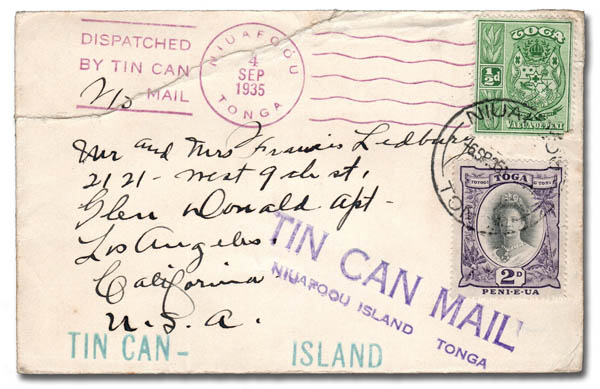 DISPATCHED
BY TIN CAN
MAIL
NIUAFOOU
4
SEP
1935
TONGA
TOGA
½d
Mr and Mrs Francis Ledbury
2121 - West 9th st,
Glen Donald Apt -
Los Angeles,
California
U.S.A.
NIUAFOOU
TOGA
2D
PENI-E-UA
TIN CAN MAIL
NIUAFOOU ISLAND TONGA
TIN CAN - ISLAND